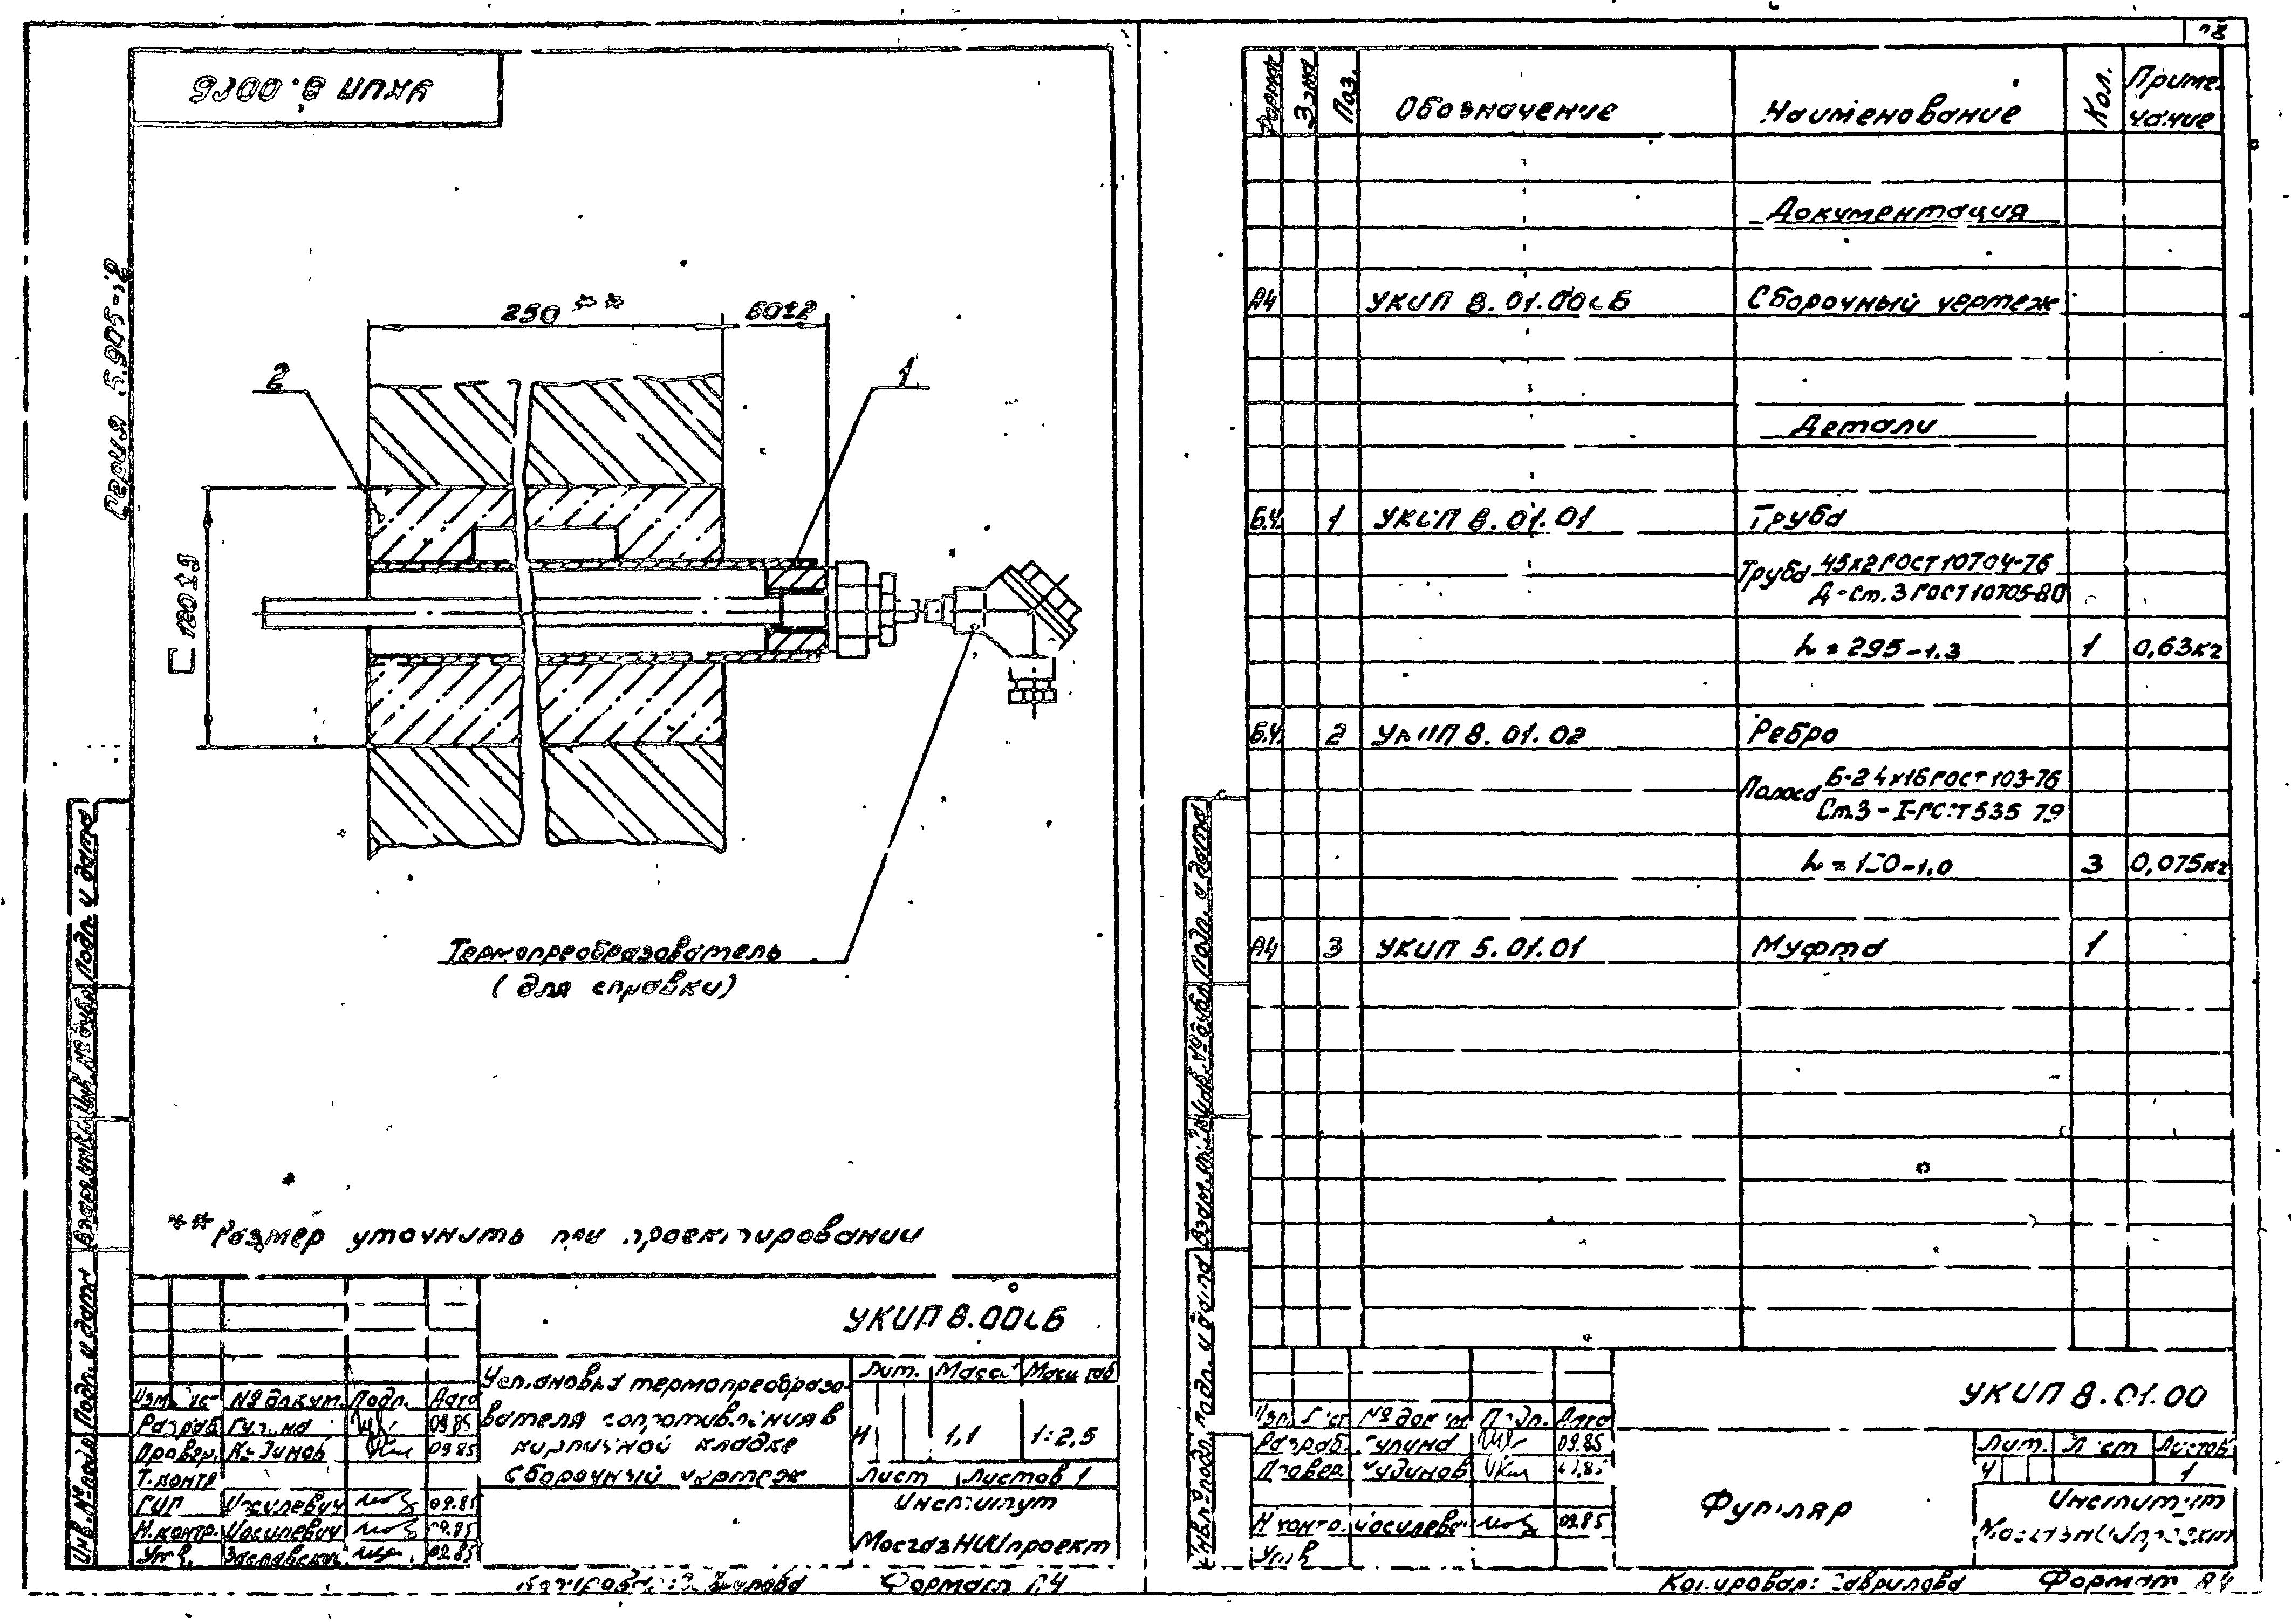 УКИП 8.00СБ
Серия 5.905-
250 **
60±2
2
1
□ 180±5
Термопреобразователь
(для справки)
**Размер уточнить при проектировании
УКИП 8.00СБ
Установка термопреобразо-
вателя сопротивления в
кирпичной кладке
Сборочный чертеж
Лит. Масса Масштаб
И 1,1 1:2,5
Лист Листов 1
Институт
МосгазНИИпроект
Изм. Лист № докум. Подп. Дата
Разраб. Гулина 09.85
Провер. Кудинов 09.85
Т.контр
ГИП Иосилевич 09.85
Н.контр. Иосилевич 09.85
Утв. Заславский 09.85
Инв. № подл. Подп. и дата Взам. инв. № Инв. № дубл. Подп. и дата
Копировал:
Формат А4
Формат Зона Поз. Обозначение Наименование Кол. Приме-
чание
Документация
А4 УКИП 8.01.00СБ Сборочный чертеж
Детали
Б.Ч. 1 УКИП 8.01.01 Труба
Труба 45х2 ГОСТ 10704-76
Д-Ст.3 ГОСТ 10705-80
L = 295-1.3 1 0,63кг
Б.Ч. 2 УКИП 8.01.02 Ребро
Полоса Б-2 4х16 ГОСТ 103-76
Ст.3-I-ГОСТ 535 79
3 0,075кг
А4 3 УКИП 5.01.01 Муфта 1
УКИП 8.01.00
Изм. Лист № докум Подп. Дата
Разраб. Гулина 09.85
Провер. Кудинов 09.85
Н контр. Иосилевич 09.85
Утв
Футляр
Лит. Лист Листов
И 1
Институт
МосгазНИИпроект
Инв. № подл. Подп. и дата Взам. инв. № Инв. № дубл. Подп. и дата
Копировал: Гаврилова Формат А4